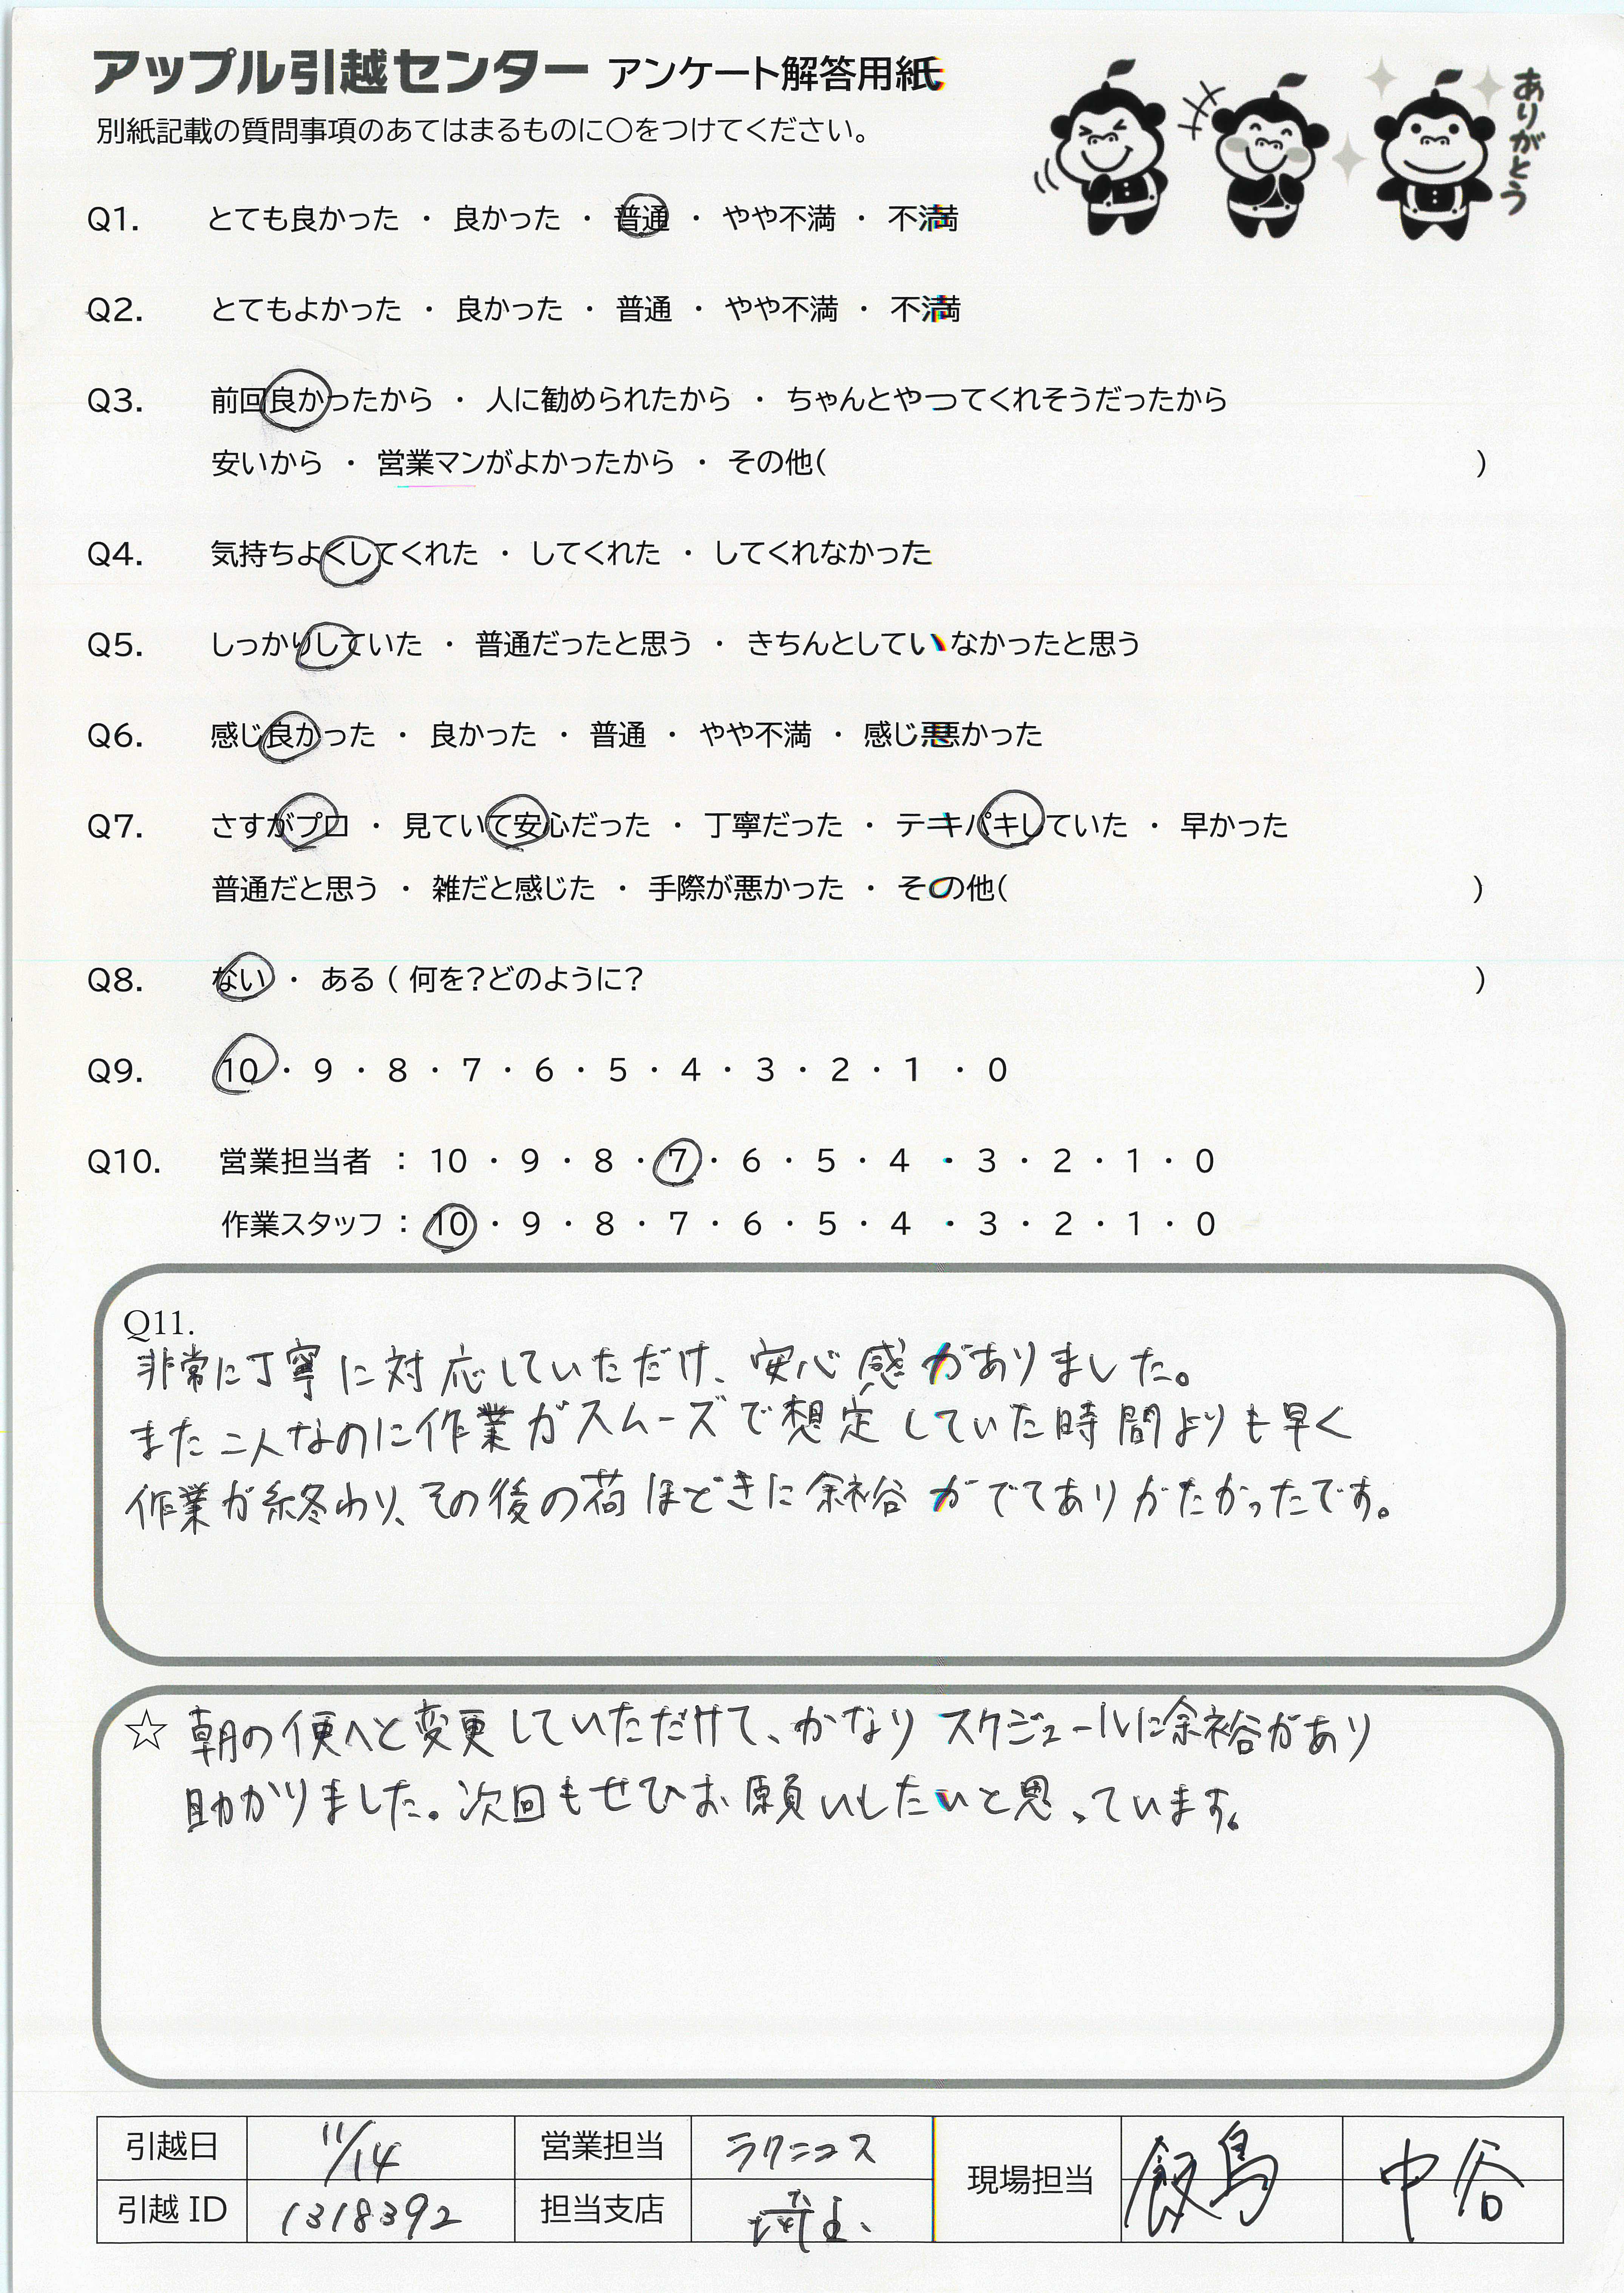 アップル引越センター アンケート解答用紙
別紙記載の質問事項のあてはまるものに〇をつけてください。
ありがとう
Q1. とても良かった ・ 良かった ・ 普通 ・ やや不満 ・ 不満
Q2. とてもよかった ・ 良かった ・ 普通 ・ やや不満 ・ 不満
Q3. 前回良かったから ・ 人に勧められたから ・ ちゃんとやってくれそうだったから
安いから ・ 営業マンがよかったから ・ その他( )
Q4. 気持ちよくしてくれた ・ してくれた ・ してくれなかった
Q5. しっかりしていた ・ 普通だったと思う ・ きちんとしていなかったと思う
Q6. 感じ良かった ・ 良かった ・ 普通 ・ やや不満 ・ 感じ悪かった
Q7. さすがプロ ・ 見ていて安心だった ・ 丁寧だった ・ テキパキしていた ・ 早かった
普通だと思う ・ 雑だと感じた ・ 手際が悪かった ・ その他( )
Q8. ない ・ ある ( 何を?どのように? )
Q9. 10 ・ 9 ・ 8 ・ 7 ・ 6 ・ 5 ・ 4 ・ 3 ・ 2 ・ 1 ・ 0
Q10. 営業担当者 : 10 ・ 9 ・ 8 ・ 7 ・ 6 ・ 5 ・ 4 ・ 3 ・ 2 ・ 1 ・ 0
作業スタッフ : 10 ・ 9 ・ 8 ・ 7 ・ 6 ・ 5 ・ 4 ・ 3 ・ 2 ・ 1 ・ 0
Q11.
非常に丁寧に対応していただけ、安心感がありました。
また二人なのに作業がスムーズで想定していた時間よりも早く
作業が終わり、その後の荷ほどきに余裕がでてありがたかったです。
☆ 朝の便へと変更していただけて、かなりスケジュールに余裕があり
助かりました。次回もぜひお願いしたいと思っています。
引越日 11/14 営業担当 ラクニコス 現場担当 飯島 中谷
引越 ID 1318392 担当支店 埼玉